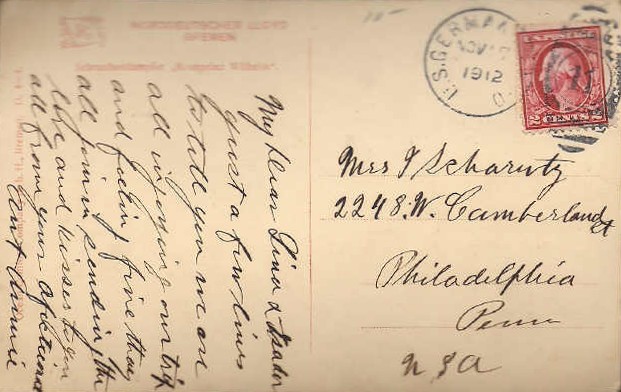 NORDDEUTSCHER LLOYD
BREMEN
Schnelldampfer „Kronprinz Wilhelm“
U.S. GERMAN
NOV
1912
2 CENTS 2
My dear Lina &
just a few lines
to tell you we are
all injoying our trip
and feeling fine they
all join in sending their
love and kisses to you
all from your afectionate
Aunt Annie
Mrs I Scharwtz
2248. W. Camberland st
Philadelphia
Penn
USA